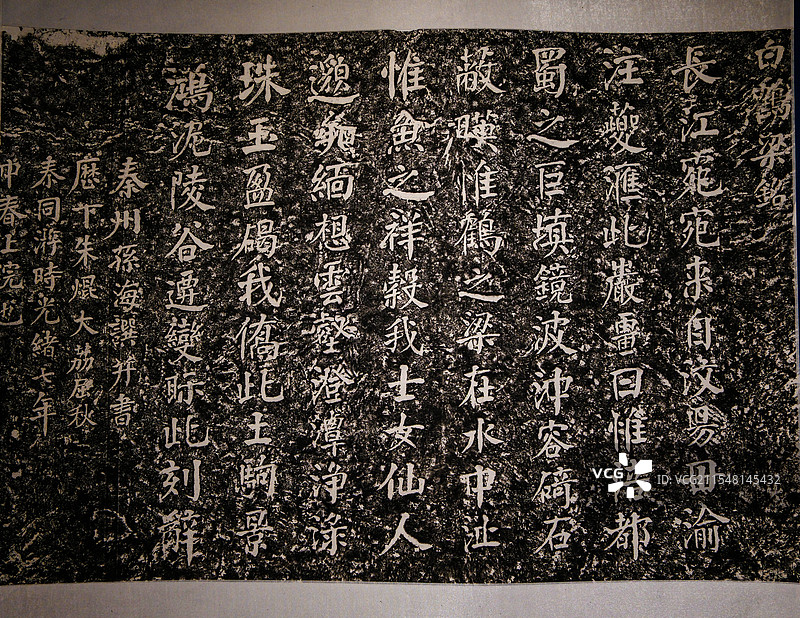 白鶴梁銘
長江宛来自汶毌渝
注夔滙此巖畺曰惟都
蜀之巨填鏡波沖容碕石
蔽惟鶴之梁在水中沚
惟魚之祥穀我士女仙人
邈緬想雲壑澄潭浄渌
珠玉盈碣我僑此土駒景
鴻泥陵谷遷變眎此刻辭
秦州孫海譔并書
歷下朱焜大荔屈秋
泰同游時光緒七年
中春上浣也
VCG
VCG
ID: VCG211548145432